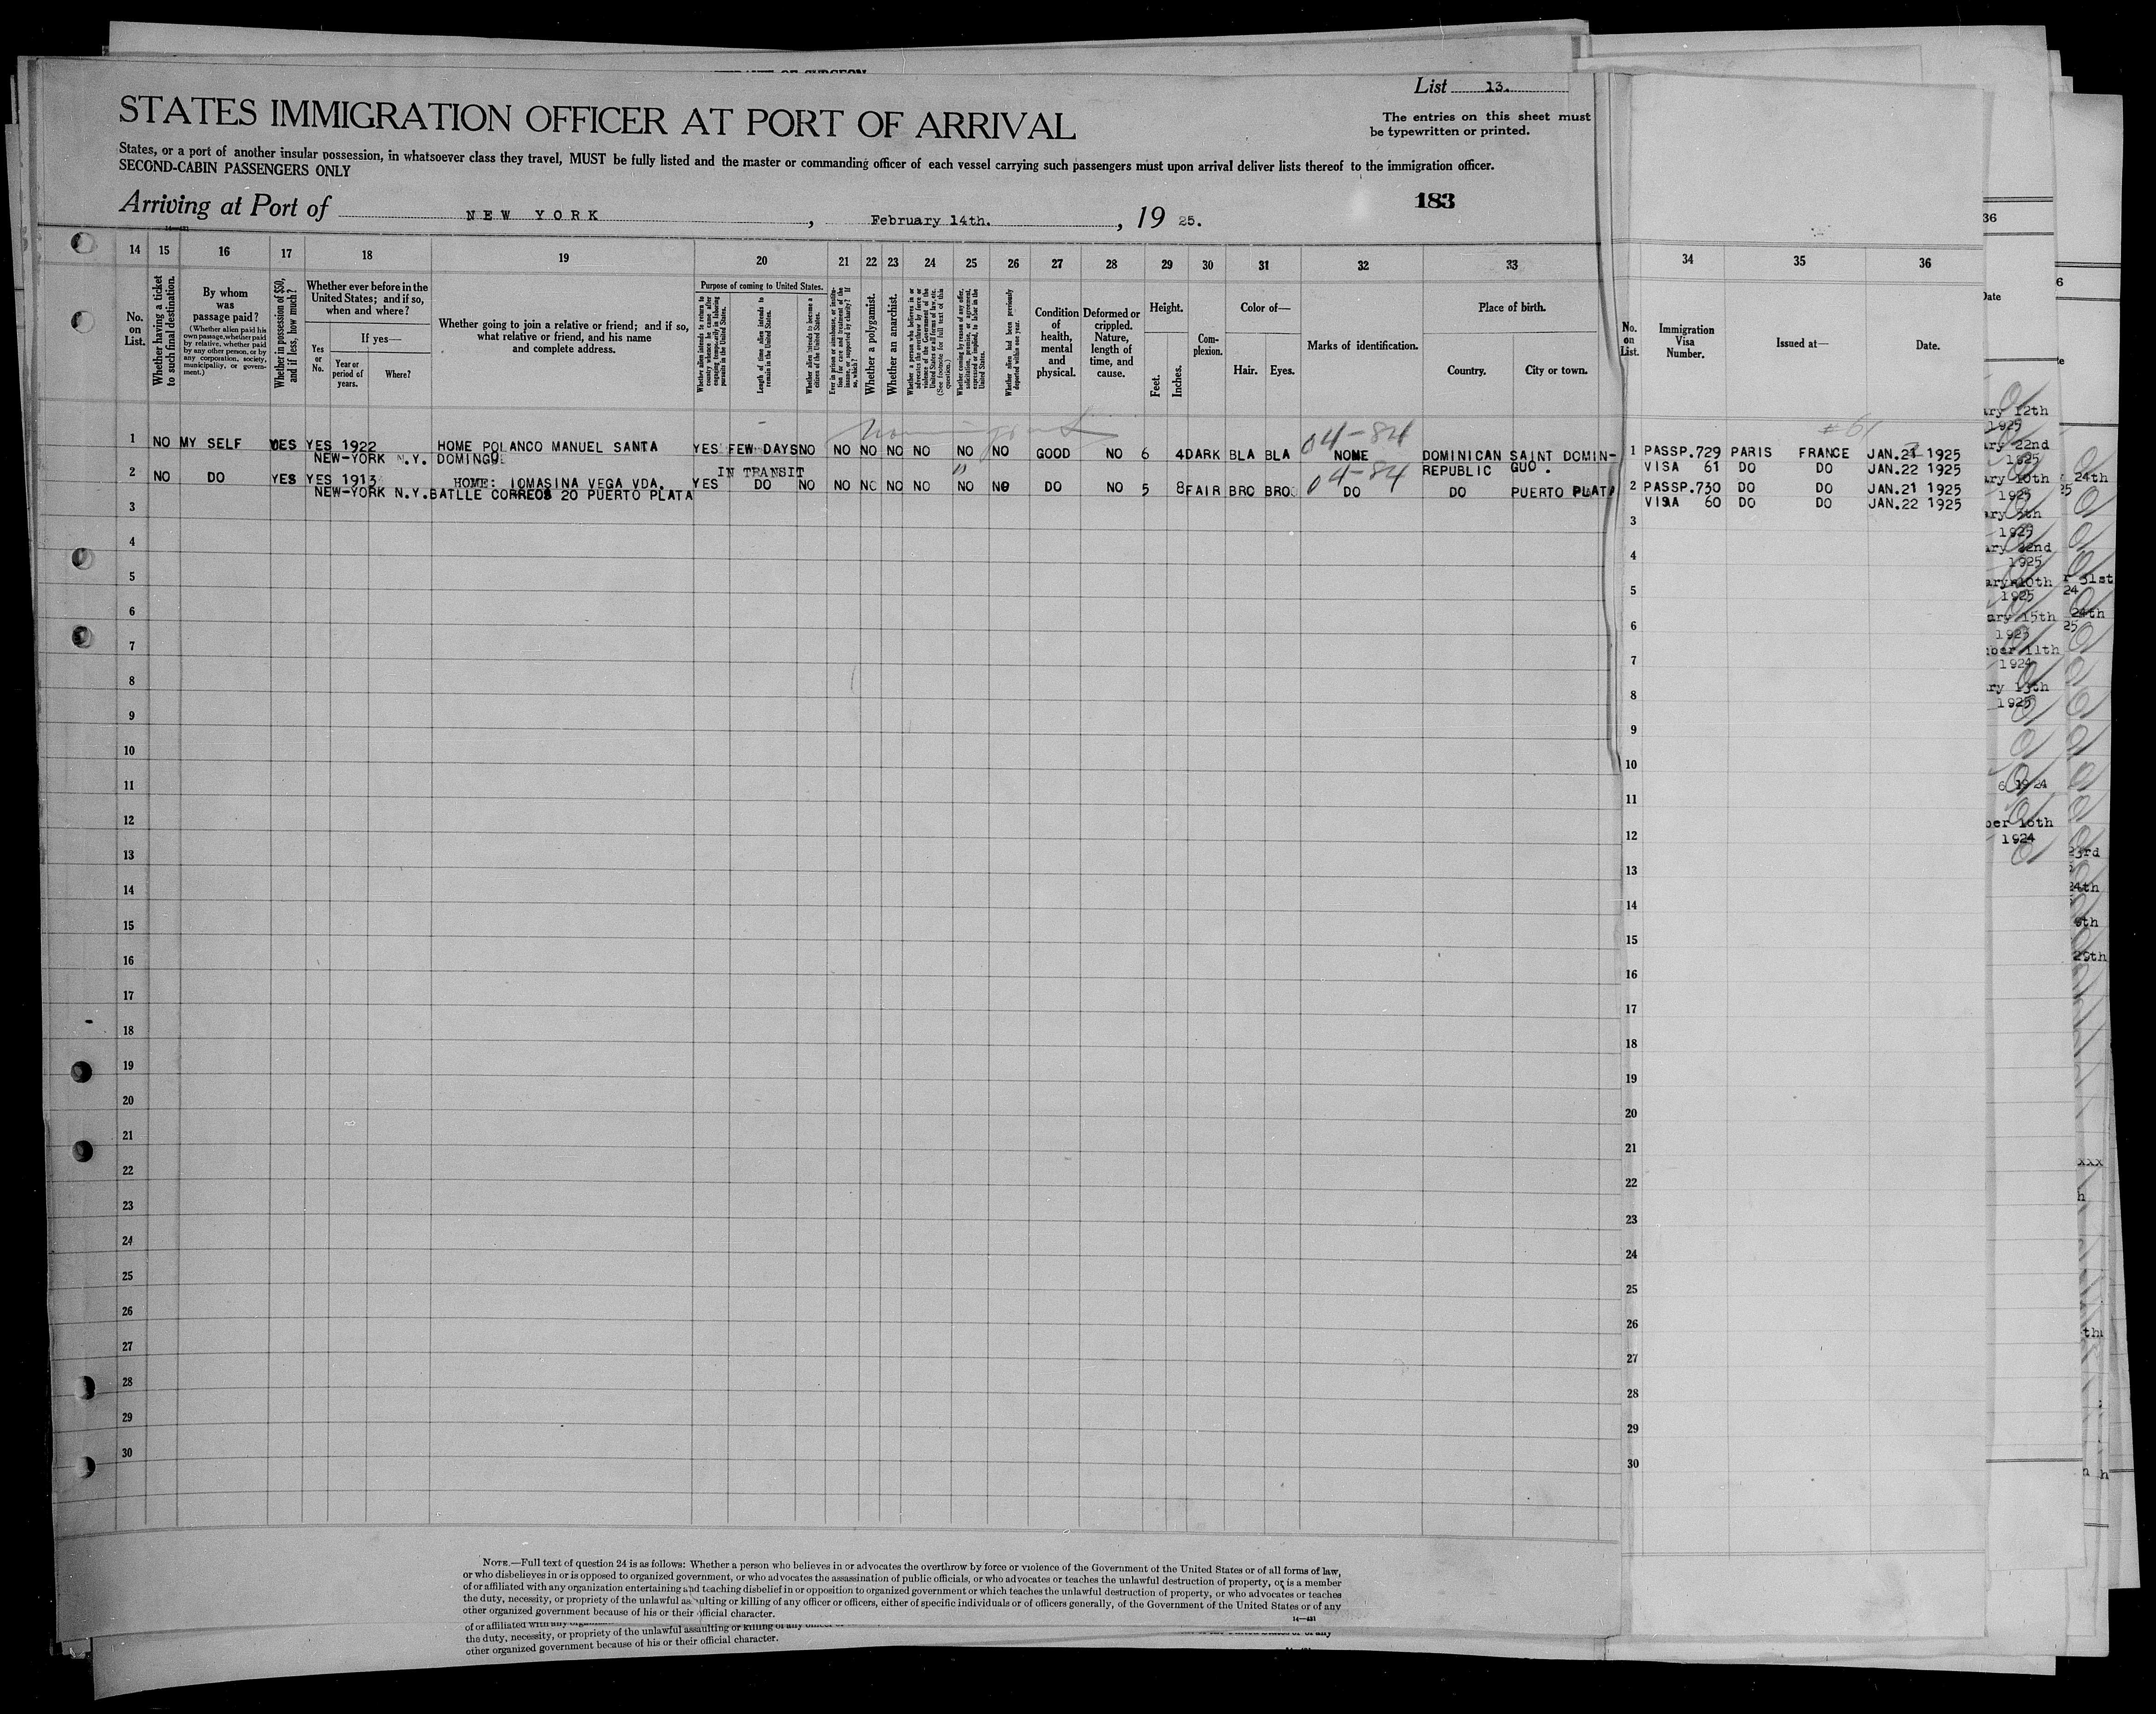 List 13.
STATES IMMIGRATION OFFICER AT PORT OF ARRIVAL
The entries on this sheet must
be typewritten or printed.
States, or a port of another insular possession, in whatsoever class they travel, MUST be fully listed and the master or commanding officer of each vessel carrying such passengers must upon arrival deliver lists thereof to the immigration officer.
SECOND-CABIN PASSENGERS ONLY
183
Arriving at Port of NEW YORK, February 14th., 19 25.
14 15 16 17 18 19 20 21 22 23 24 25 26 27 28 29 30 31 32 33 34 35 36
No. on List.
Whether having a ticket to such final destination.
By whom was passage paid?
(Whether alien paid his own passage, whether paid by relative, whether paid by any other person, or by any corporation, society, municipality, or government.)
Whether in possession of $50, and if less, how much?
Whether ever before in the United States; and if so, when and where?
If yes—
Yes or No.
Year or period of years.
Where?
Whether going to join a relative or friend; and if so, what relative or friend, and his name and complete address.
Purpose of coming to United States.
Whether alien intends to return to country whence he came after engaging temporarily in laboring pursuits in the United States.
Length of time alien intends to remain in the United States.
Whether alien intends to become a citizen of the United States.
Ever in prison or almshouse, or institution for care and treatment of the insane, or supported by charity? If so, which?
Whether a polygamist.
Whether an anarchist.
Whether a person who believes in or advocates the overthrow by force or violence of the Government of the United States or all forms of law, etc. (See footnote for full text of this question.)
Whether coming by reason of any offer, solicitation, promise, or agreement, expressed or implied, to labor in the United States.
Whether alien had been previously deported within one year.
Condition of health, mental and physical.
Deformed or crippled. Nature, length of time, and cause.
Height.
Feet.
Inches.
Complexion.
Color of—
Hair.
Eyes.
Marks of identification.
Place of birth.
Country.
City or town.
No. on List.
Immigration Visa Number.
Issued at—
Date.
1 NO MY SELF YES YES 1922 HOME POLANCO MANUEL SANTA YES FEW DAYS NO NO NO NO NO NO NO GOOD NO 6 4 DARK BLA BLA NONE DOMINICAN SAINT DOMIN- 1 PASSP.729 PARIS FRANCE JAN.21 1925
NEW-YORK N.Y. DOMINGO IN TRANSIT REPUBLIC GUO. VISA 61 DO DO JAN.22 1925
04-84
2 NO DO YES YES 1913 HOME: IOMASINA VEGA VDA. YES DO NO NO NO NO NO NO NO DO NO 5 8 FAIR BRO BRO DO DO PUERTO PLATA 2 PASSP.730 DO DO JAN.21 1925
NEW-YORK N.Y. BATLLE CORREOS 20 PUERTO PLATA VISA 60 DO DO JAN.22 1925
04-84
3 3
4 4
5 5
6 6
7 7
8 8
9 9
10 10
11 11
12 12
13 13
14 14
15 15
16 16
17 17
18 18
19 19
20 20
21 21
22 22
23 23
24 24
25 25
26 26
27 27
28 28
29 29
30 30
NOTE.—Full text of question 24 is as follows: Whether a person who believes in or advocates the overthrow by force or violence of the Government of the United States or of all forms of law,
or who disbelieves in or is opposed to organized government, or who advocates the assassination of public officials, or who advocates or teaches the unlawful destruction of property, or is a member
of or affiliated with any organization entertaining and teaching disbelief in or opposition to organized government or which teaches the unlawful destruction of property, or who advocates or teaches
the duty, necessity, or propriety of the unlawful assaulting or killing of any officer or officers, either of specific individuals or of officers generally, of the Government of the United States or of any
other organized government because of his or their official character.
14—421
the duty, necessity, or propriety of the unlawful assaulting or killing of any
other organized government because of his or their official character.